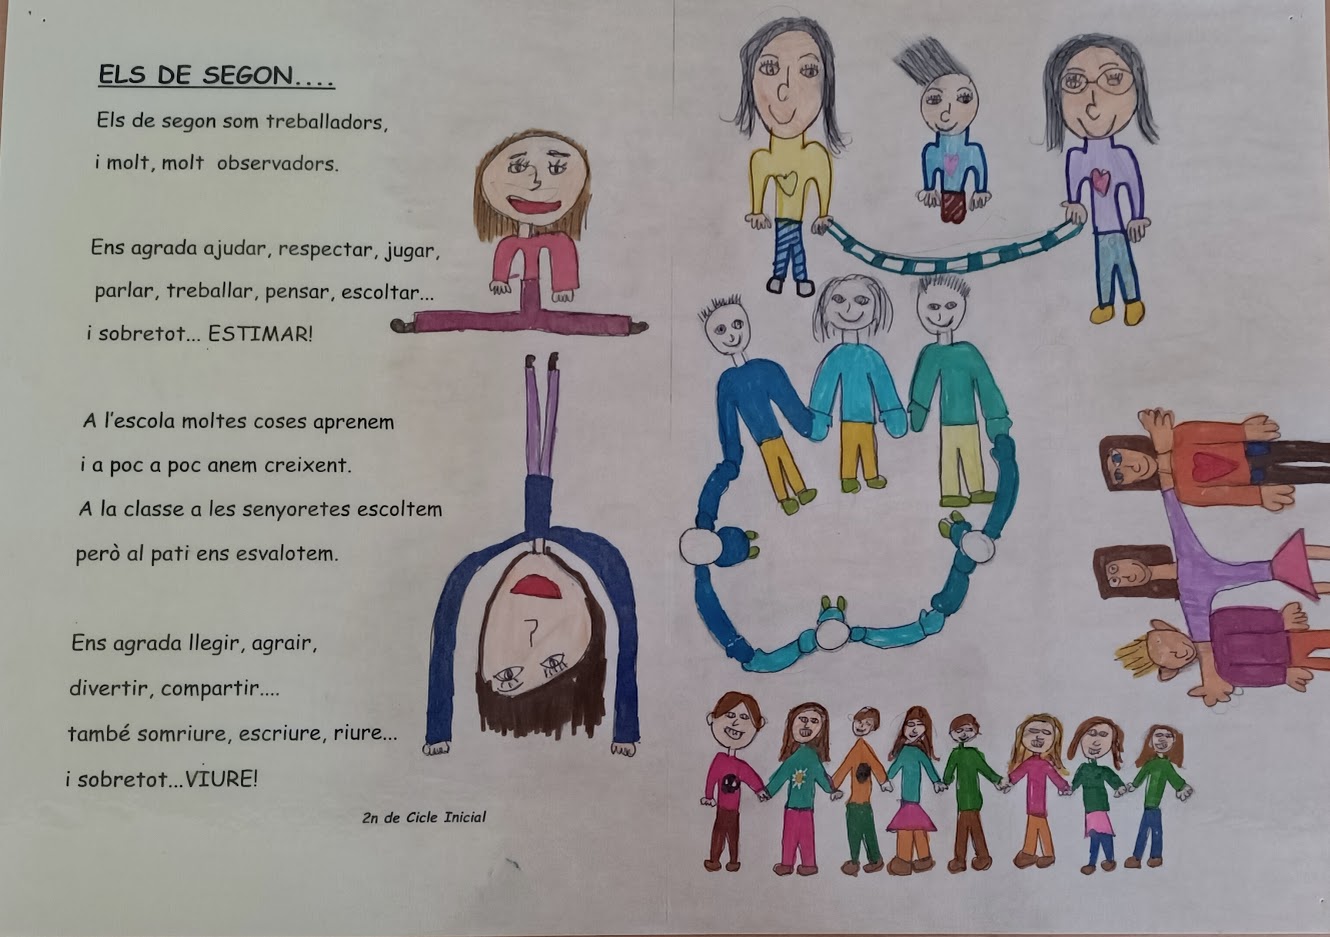 ELS DE SEGON....
Els de segon som treballadors,
i molt, molt observadors.
Ens agrada ajudar, respectar, jugar,
parlar, treballar, pensar, escoltar...
i sobretot... ESTIMAR!
A l'escola moltes coses aprenem
i a poc a poc anem creixent.
A la classe a les senyoretes escoltem
però al pati ens esvalotem.
Ens agrada llegir, agrair,
divertir, compartir....
també somriure, escriure, riure...
i sobretot...VIURE!
2n de Cicle Inicial